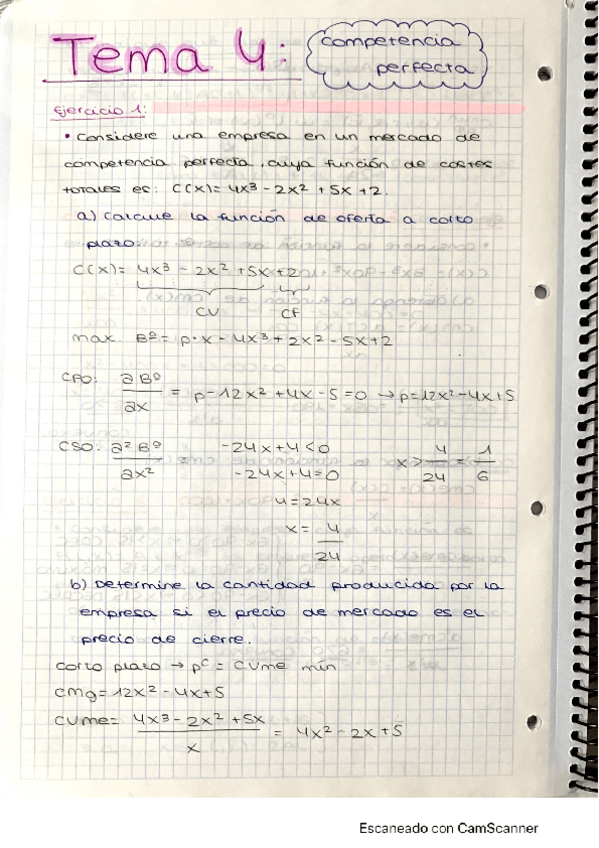 Tema 4:
competencia
perfecta
Ejercicio 1:
• Considere una empresa en un mercado de
competencia perfecta, cuya función de costes
totales es: C(x)= 4x³ - 2x² + 5x + 2.
a) Calcule la función de oferta a corto
plazo.
C(x)= 4x³ - 2x² + 5x + 2
CV CF
max Bº = p·x - 4x³ + 2x² - 5x + 2
CPO: ∂Bº/∂x = p - 12x² + 4x - 5 = 0 → p = 12x² - 4x + 5
CSO: ∂²Bº/∂x² = -24x + 4 < 0 x > 4/24 = 1/6
-24x + 4 = 0
4 = 24x
x = 4/24
b) Determine la cantidad producida por la
empresa si el precio de mercado es el
precio de cierre.
corto plazo → pᶜ = CVme mín
cmg = 12x² - 4x + 5
CVme = 4x³ - 2x² + 5x / x = 4x² - 2x + 5
Escaneado con CamScanner